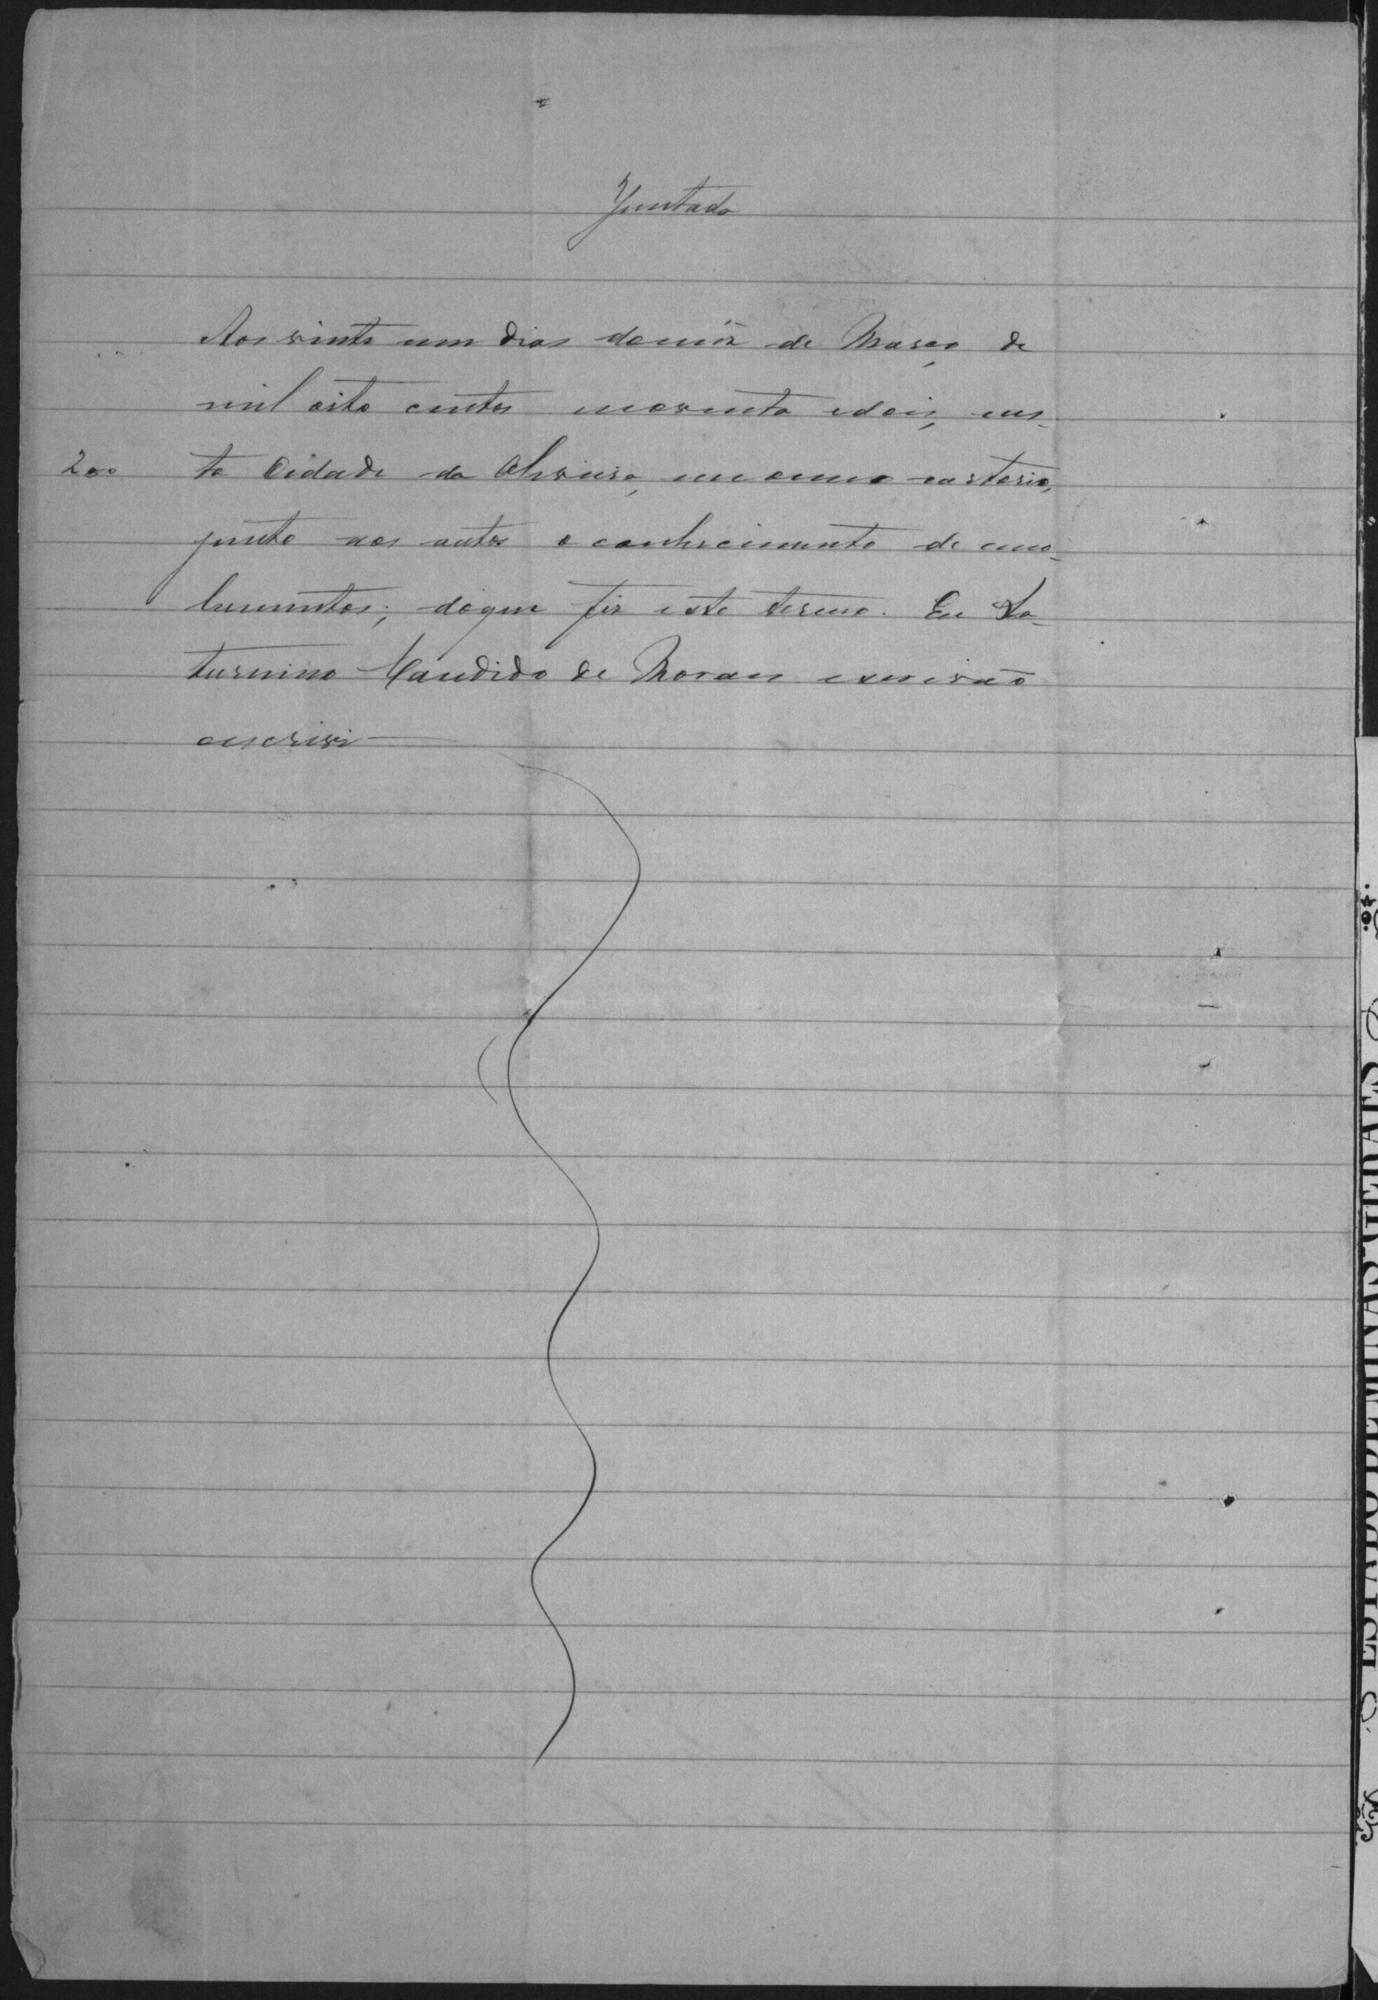 Juntada
Aos vinte um dias do mêz de Março de
mil oito centos noventa e dois, nes-
200 ta Cidade da em meu cartorio,
junto aos autos o conhecimento de emo-
lumentos; do que fiz este termo. Eu Sa-
turnino Candido de Moraes escrivão
o escrivi